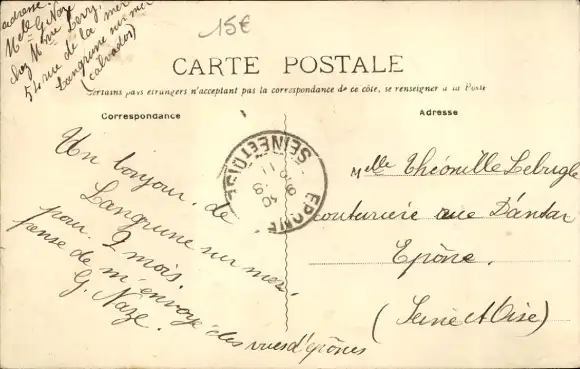 adresse.
Melle G. Naze
chez Mme Lerry,
54 rue de la mer
Langrune sur mer
(Calvados)
15€
CARTE POSTALE
Certains pays étrangers n'acceptent pas la correspondance de ce côté, se renseigner à la Poste
Correspondance
Adresse
Un bonjour, de
Langrune sur mer.
pour 2 mois.
pense de m'envoyé des vues d'épônes
G. Naze.
EPONE
SEINE ET OISE
Melle Théonille Lebrigle
couturière rue D'antar
Epône.
(Seine et Oise)